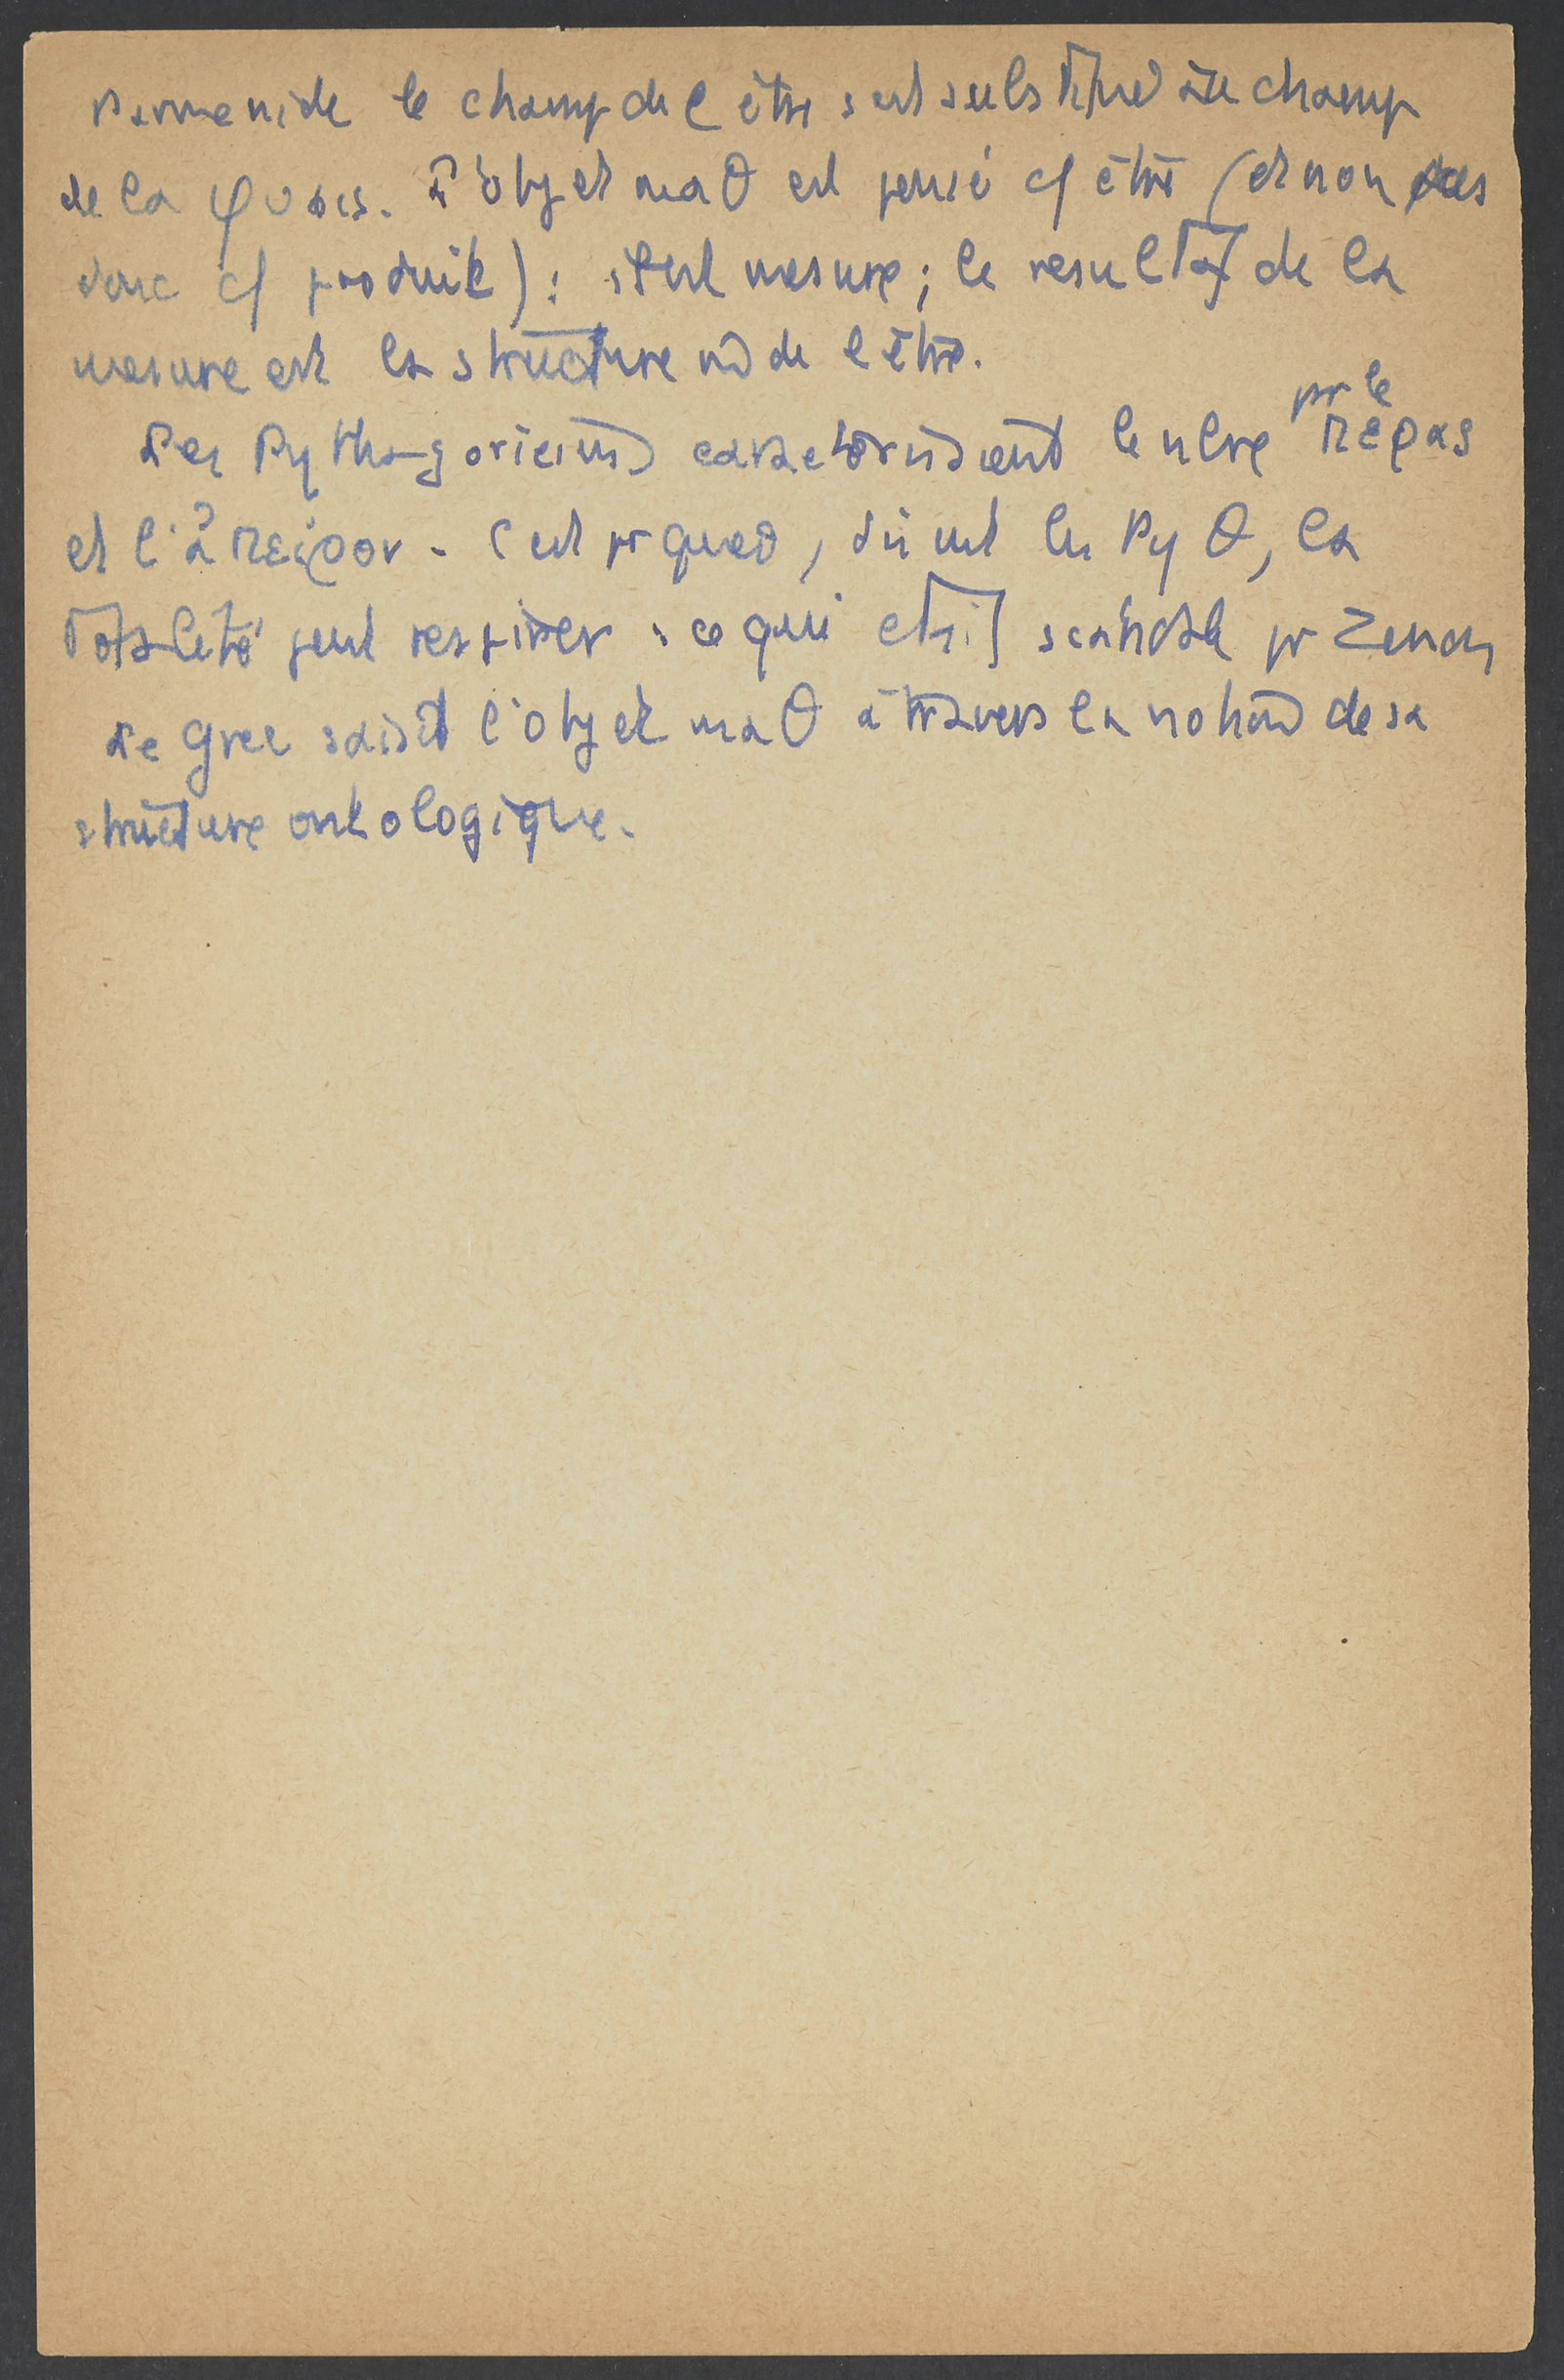 Parmenide le champ de l'être s'est substitué au champ
de la φυσις. L'objet maθ est pensé c/ être (et non pas
donc c/ produit) : il est mesure ; le resultat de la
mesure est la structure m̂ de l'être.
Les Pythagoriciens caracterisaient le nbre pr le πέρας
et l'ἄπειρον. C'est pr quoi, disent les Pyθ, la
totalité peut respirer : ce qui était scandale pr Zenon
Le Grec saisit l'objet maθ à travers la notion de sa
structure ontologique.